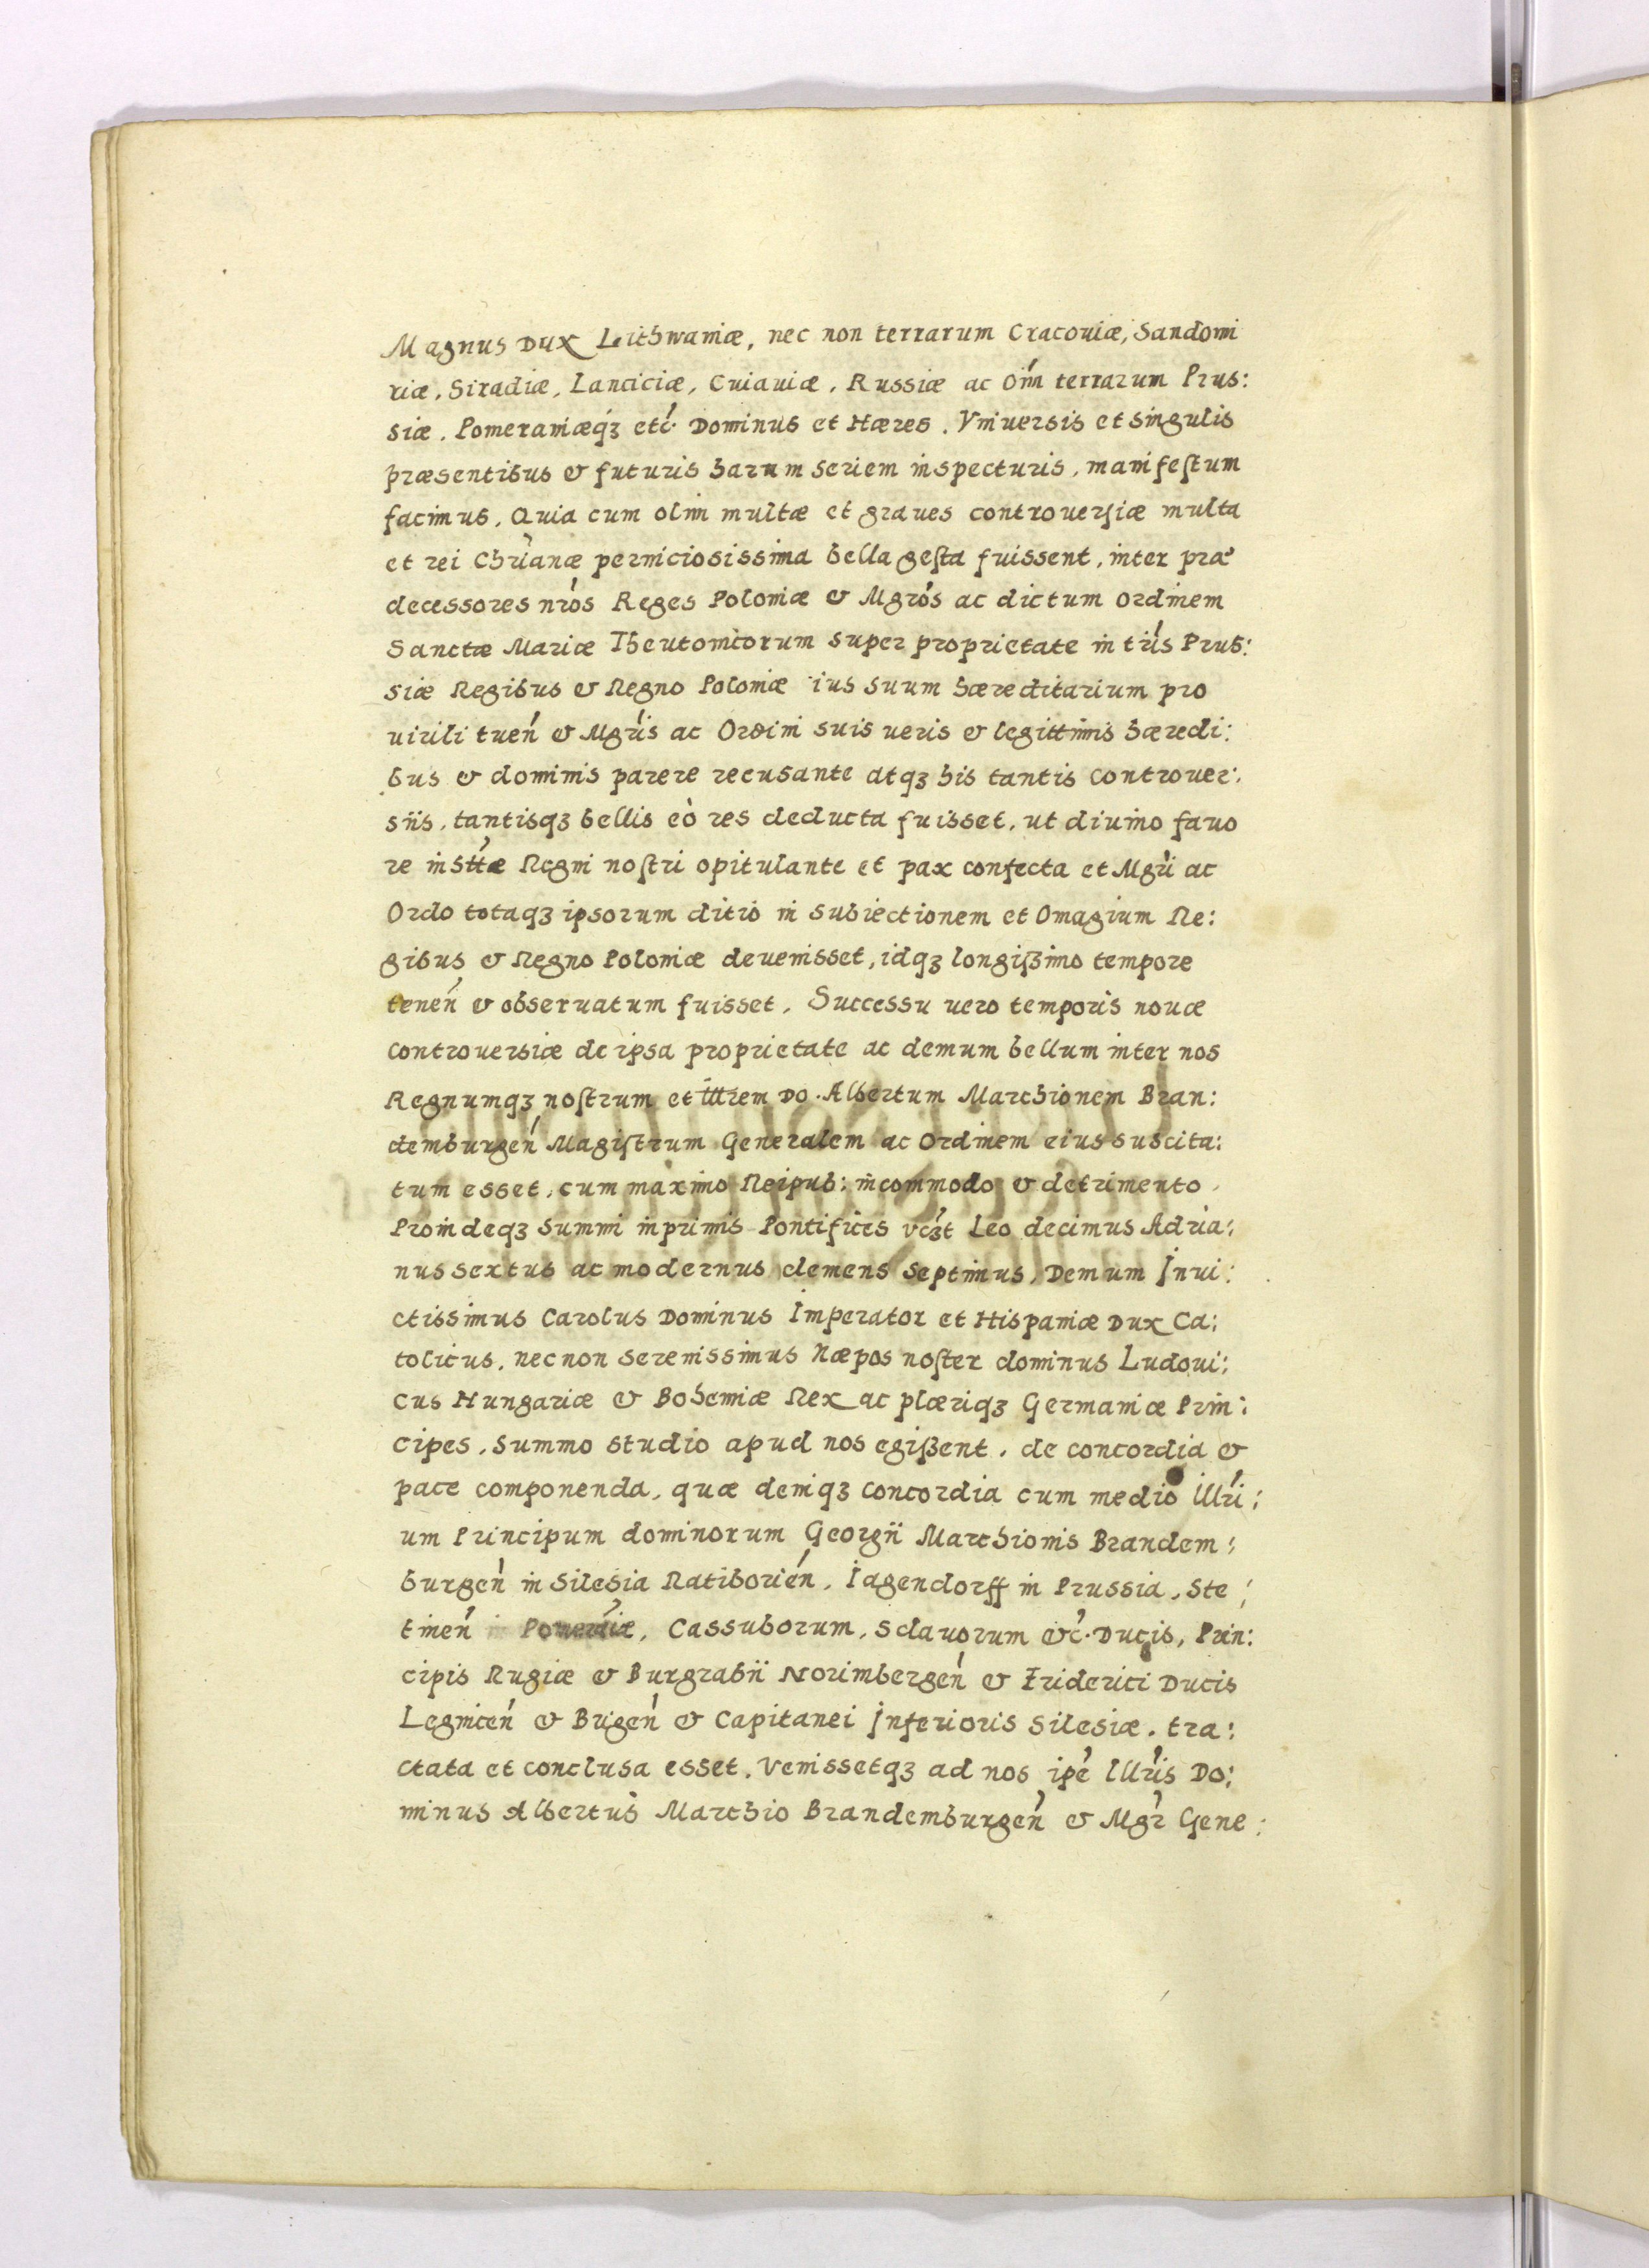 Magnus Dux Lithwaniæ, nec non terrarum Cracoviæ, Sandomi
riæ, Siradiæ, Lanciciæ, Cuiauiæ, Russiæ ac Om̃ terrarum Prus:
siæ, Pomeraniæqȝ etc̃. Dominus et Hæres. Vniuersis et singulis
præsentibus & futuris harum seriem inspecturis, manifeſtum
facimus, Quia cum olim multæ et graues controuerſiæ multa
et rei Chr̃ianæ perniciosissima bella geſta fuissent, inter præ
decessores nr̃os Reges Poloniæ & Mgr̃os ac dictum Ordinem
Sanctæ Mariæ Theutonicorum super proprietate in tr̃is Prus:
siæ Regibus & Regno Poloniæ ius suum hæreditarium pro
uirili tueñ & Mgr̃is ac Ordini suis ueris & legittimis hæredi:
bus & dominis parere recusante atqȝ his tantis controuer:
siis, tantisqȝ bellis eò res deducta fuisset, ut diuino fauo
re inſttæ Regni noſtri opitulante et pax confecta et Mgr̃i ac
Ordo totaqȝ ipsorum ditio in subiectionem et Omagium Re:
gibus & Regno Poloniæ deuenisset, idqȝ longiſsimo tempore
teneñ & obseruatum fuisset. Successu uero temporis nouæ
controuersiæ de ipsa proprietate ac demum bellum inter nos
Regnumqȝ noſtrum et illr̃em Do. Albertum Marchionem Bran:
demburgeñ Magiſtrum Generalem ac Ordinem eius suscita:
tum esset, cum maximo Reipub: incommodo & detrimento,
Proindeqȝ Summi inprimis Pontifices vcȝt Leo decimus Adria:
nus sextus ac modernus clemens Septimus, Demum Jnui:
ctissimus Carolus Dominus Imperator et Hispaniæ Dux Ca:
tolicus, necnon serenissimus Næpos noſter dominus Ludoui:
cus Hungariæ & Bohemiæ Rex ac plæriqȝ Germaniæ Prin:
cipes, summo studio apud nos egiſsent, de concordia &
pace componenda, quæ deniqȝ concordia cum medio illr̃i:
um Principum dominorum Georgii Marchionis Brandem:
burgeñ in Silesia Ratiborieñ, Iagendorff in Prussia, Ste:
tineñ Pomer̃iæ, Cassuborum, Sclauorum &c̃. Ducis, Prin:
cipis Rugiæ & Burgrabii Norimbergeñ & Friderici Ducis
Legniceñ & Brigeñ & Capitanei Jnferioris Silesiæ. tra:
ctata et conclusa esset. Venissetqȝ ad nos ip̃e Illr̃is Do:
minus Albertus Marchio Brandemburgeñ & Mgr̃ Gene: